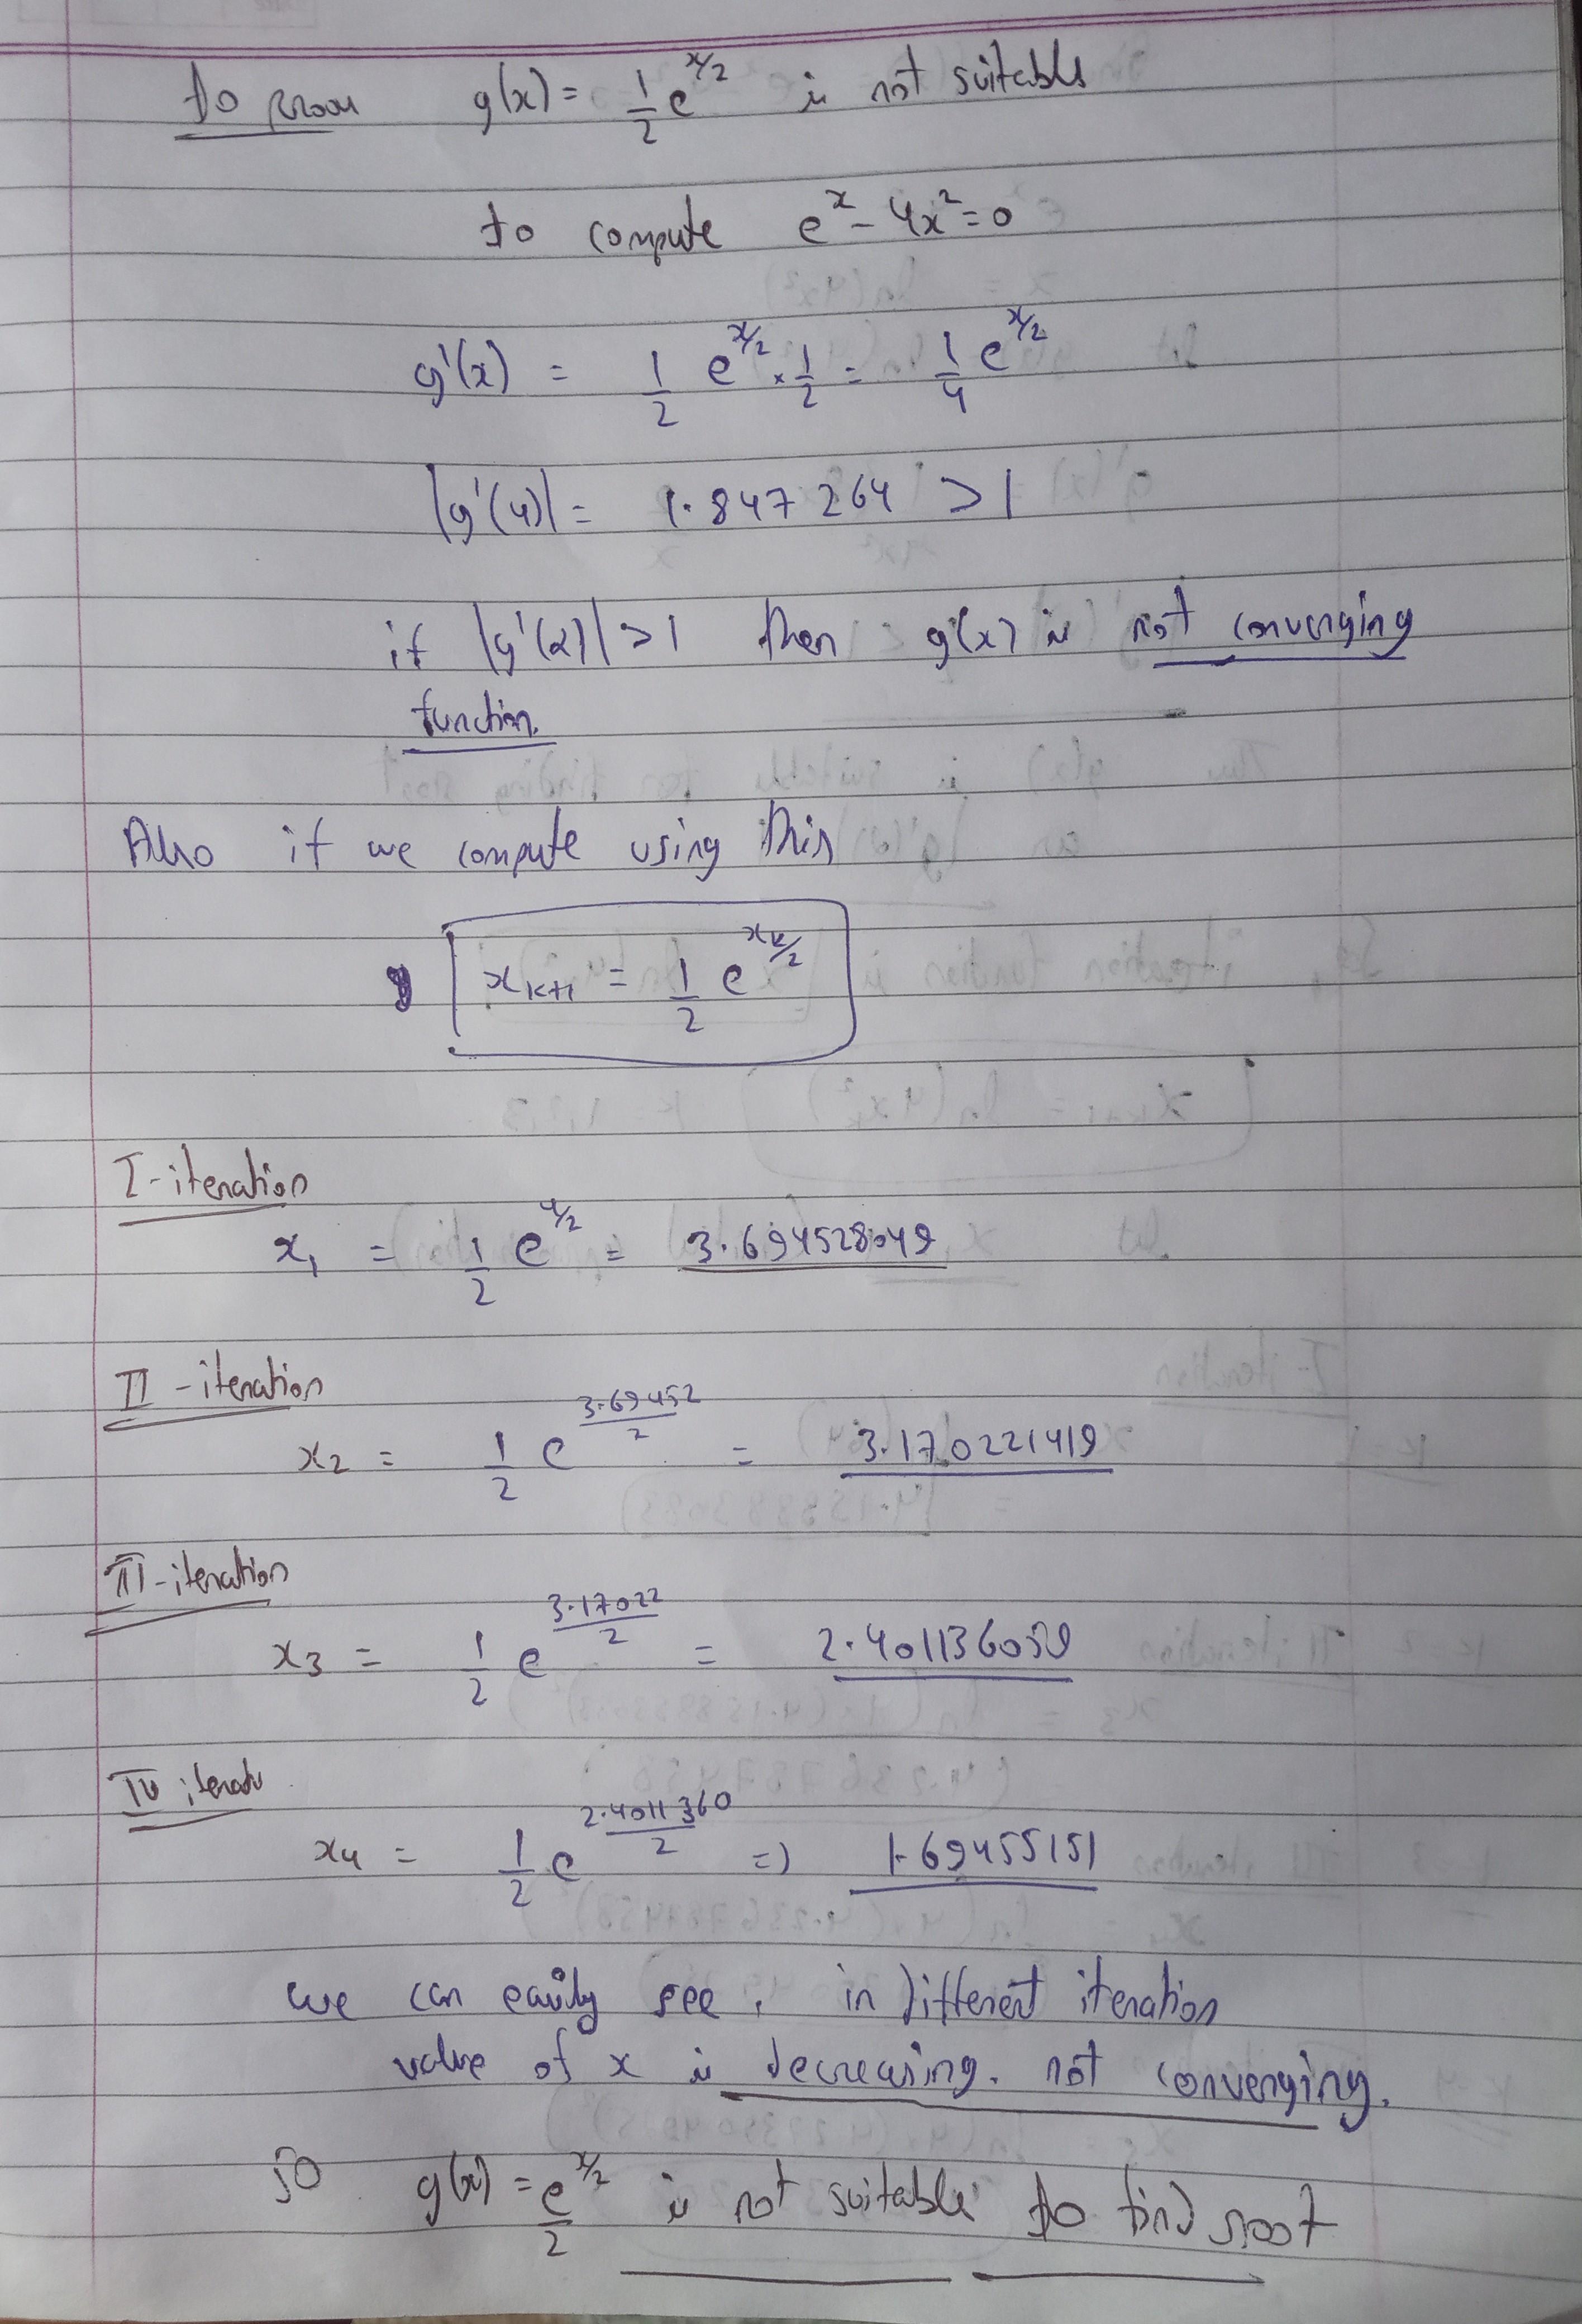 To prove g(x) = 1/2 e^x/2 is not suitable
to compute e^x - 4x^2 = 0
g'(x) = 1/2 e^x/2 × 1/2 = 1/4 e^x/2
|g'(4)| = 1.847264 > 1
if |g'(x)| > 1 then g(x) is not converging
function.
Also if we compute using this
x_k+1 = 1/2 e^x_k/2
I-iteration
x_1 = 1/2 e^4/2 = 3.694528049
II-iteration
x_2 = 1/2 e^3.69452/2 = 3.170221419
III-iteration
x_3 = 1/2 e^3.17022/2 = 2.401136059
IV iteratn
x_4 = 1/2 e^2.4011360/2 => 1.69455151
we can easily see, in different iteration
value of x is decreasing. not converging.
so g(x) = e^x/2 / 2 is not suitable to find root